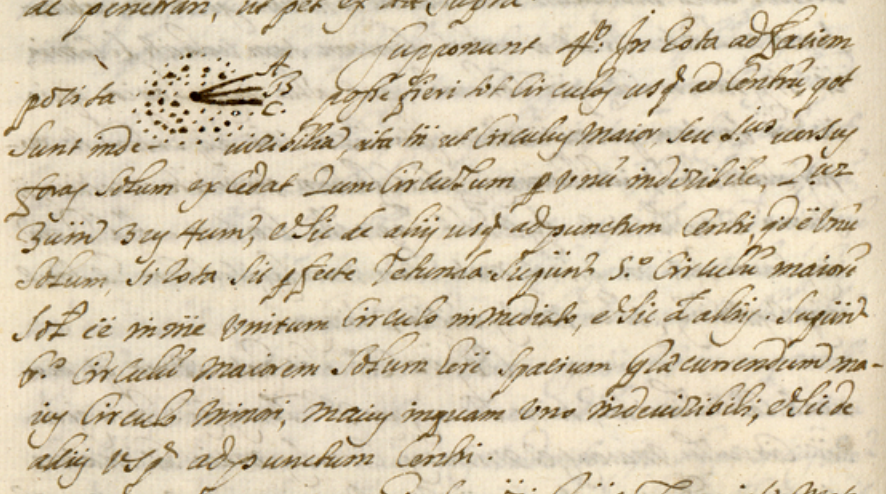 ac penetrari, ut pet ex dat supra
Supponunt 4º: In Rota ad faciem
polita A B C posse fieri tot Circulos usq ad Centrũ, qot
sunt inde uizibilia, ita tñ ut Circulus Maior, seu 1us uersus
foras solum excedat 2um Circulum p unũ indiuizibile, 2us
3um 3us 4um, et sic de alijs usq ad punctum Centri, qd ẽ unũ
solum, si Rota sit pfecte rotunda. 5º Circulũ maiorẽ
in unitum Circulo immediato, et sic d alijs.
6º Circulũ Maiorem solum spatium currendum ma-
ius Circulo Minori, maius inquam uno indeuizibili, et sic de
alijs usq ad punctum Centri.